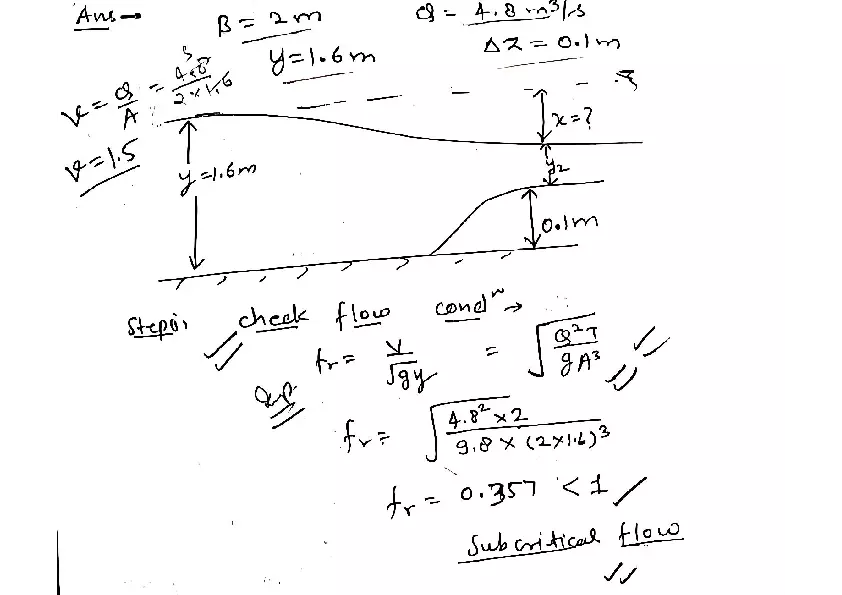 Ans →
B = 2m
Q = 4.8 m³/s
y = 1.6 m
ΔZ = 0.1m
v = Q/A = 4.8/2×1.6
v = 1.5
x = ?
y = 1.6m
y₂
0.1m
Step(i): check flow condⁿ →
fr = V/√gy = √(Q²T/gA³)
fr = √(4.8² × 2/9.8 × (2×1.6)³)
fr = 0.357 < 1
Subcritical flow